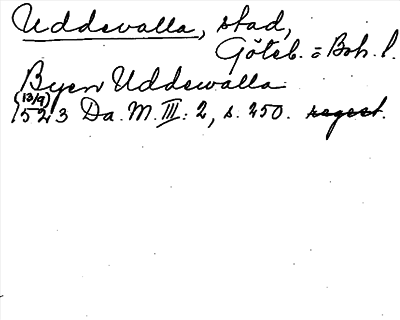 Uddevalla, stad,
Göteb. = Boh. l.
Byen Uddewalla
(13/9)
1523 Da. M. III: 2, s. 250. regest.